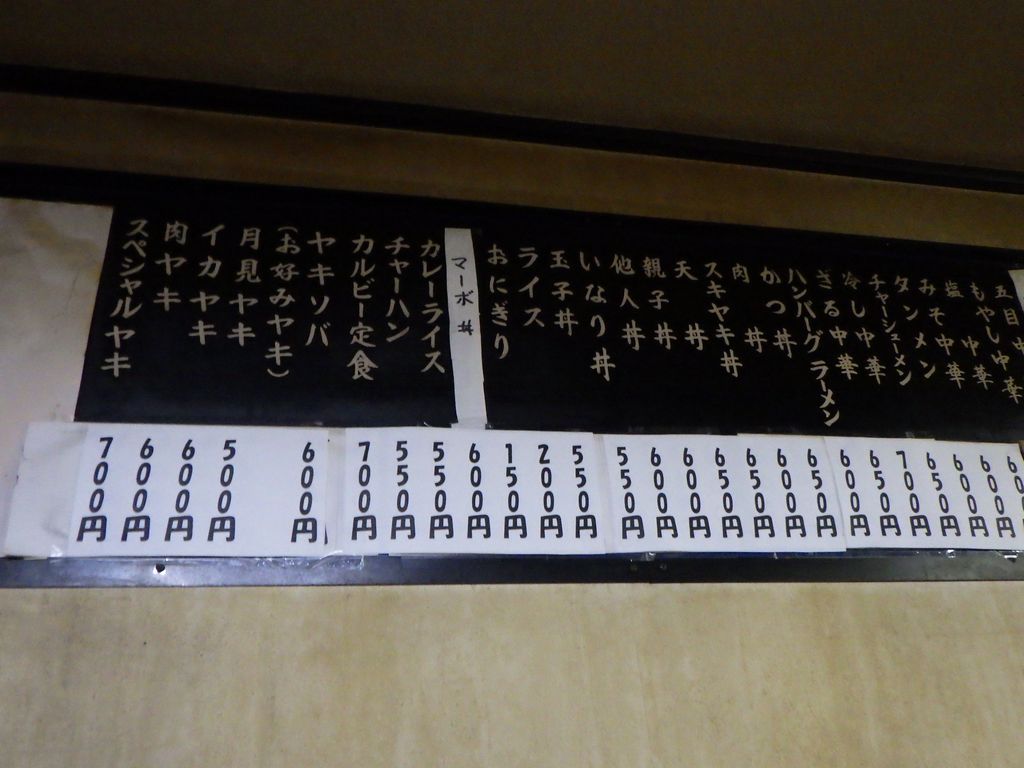 五目中華
もやし中華
塩中華
みそ中華
タンメン
チャーシューメン
冷し中華
ざる中華
ハンバーグラーメン
かつ丼
肉丼
スキヤキ丼
天丼
親子丼
他人丼
いなり丼
玉子丼
ライス
おにぎり
マーボ丼
カレーライス
チャーハン
カルビー定食
ヤキソバ
(お好みヤキ)
月見ヤキ
イカヤキ
肉ヤキ
スペシャルヤキ
600円
600円
650円
700円
650円
600円
650円
600円
650円
650円
600円
600円
550円
550円
200円
150円
600円
550円
550円
700円
600円
500円
600円
600円
700円